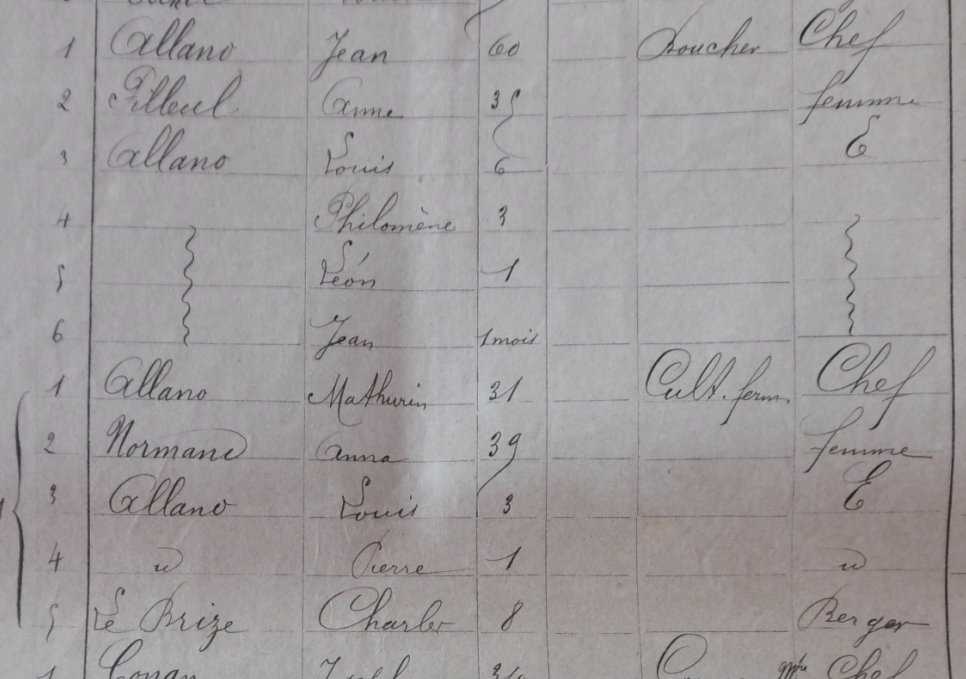 1 Allano Jean 60 Boucher Chef
2 Pilleul Anne 35 femme
3 Allano Louis 6 E
4 Philomène 3
5 Léon 1
6 Jean 1 mois
1 Allano Mathurin 31 Cult. ferm. Chef
2 Normand Anna 39 femme
3 Allano Louis 3 E
4 d Pierre 1 d
5 Le Brize Charles 8 Berger
1 Conan Chef